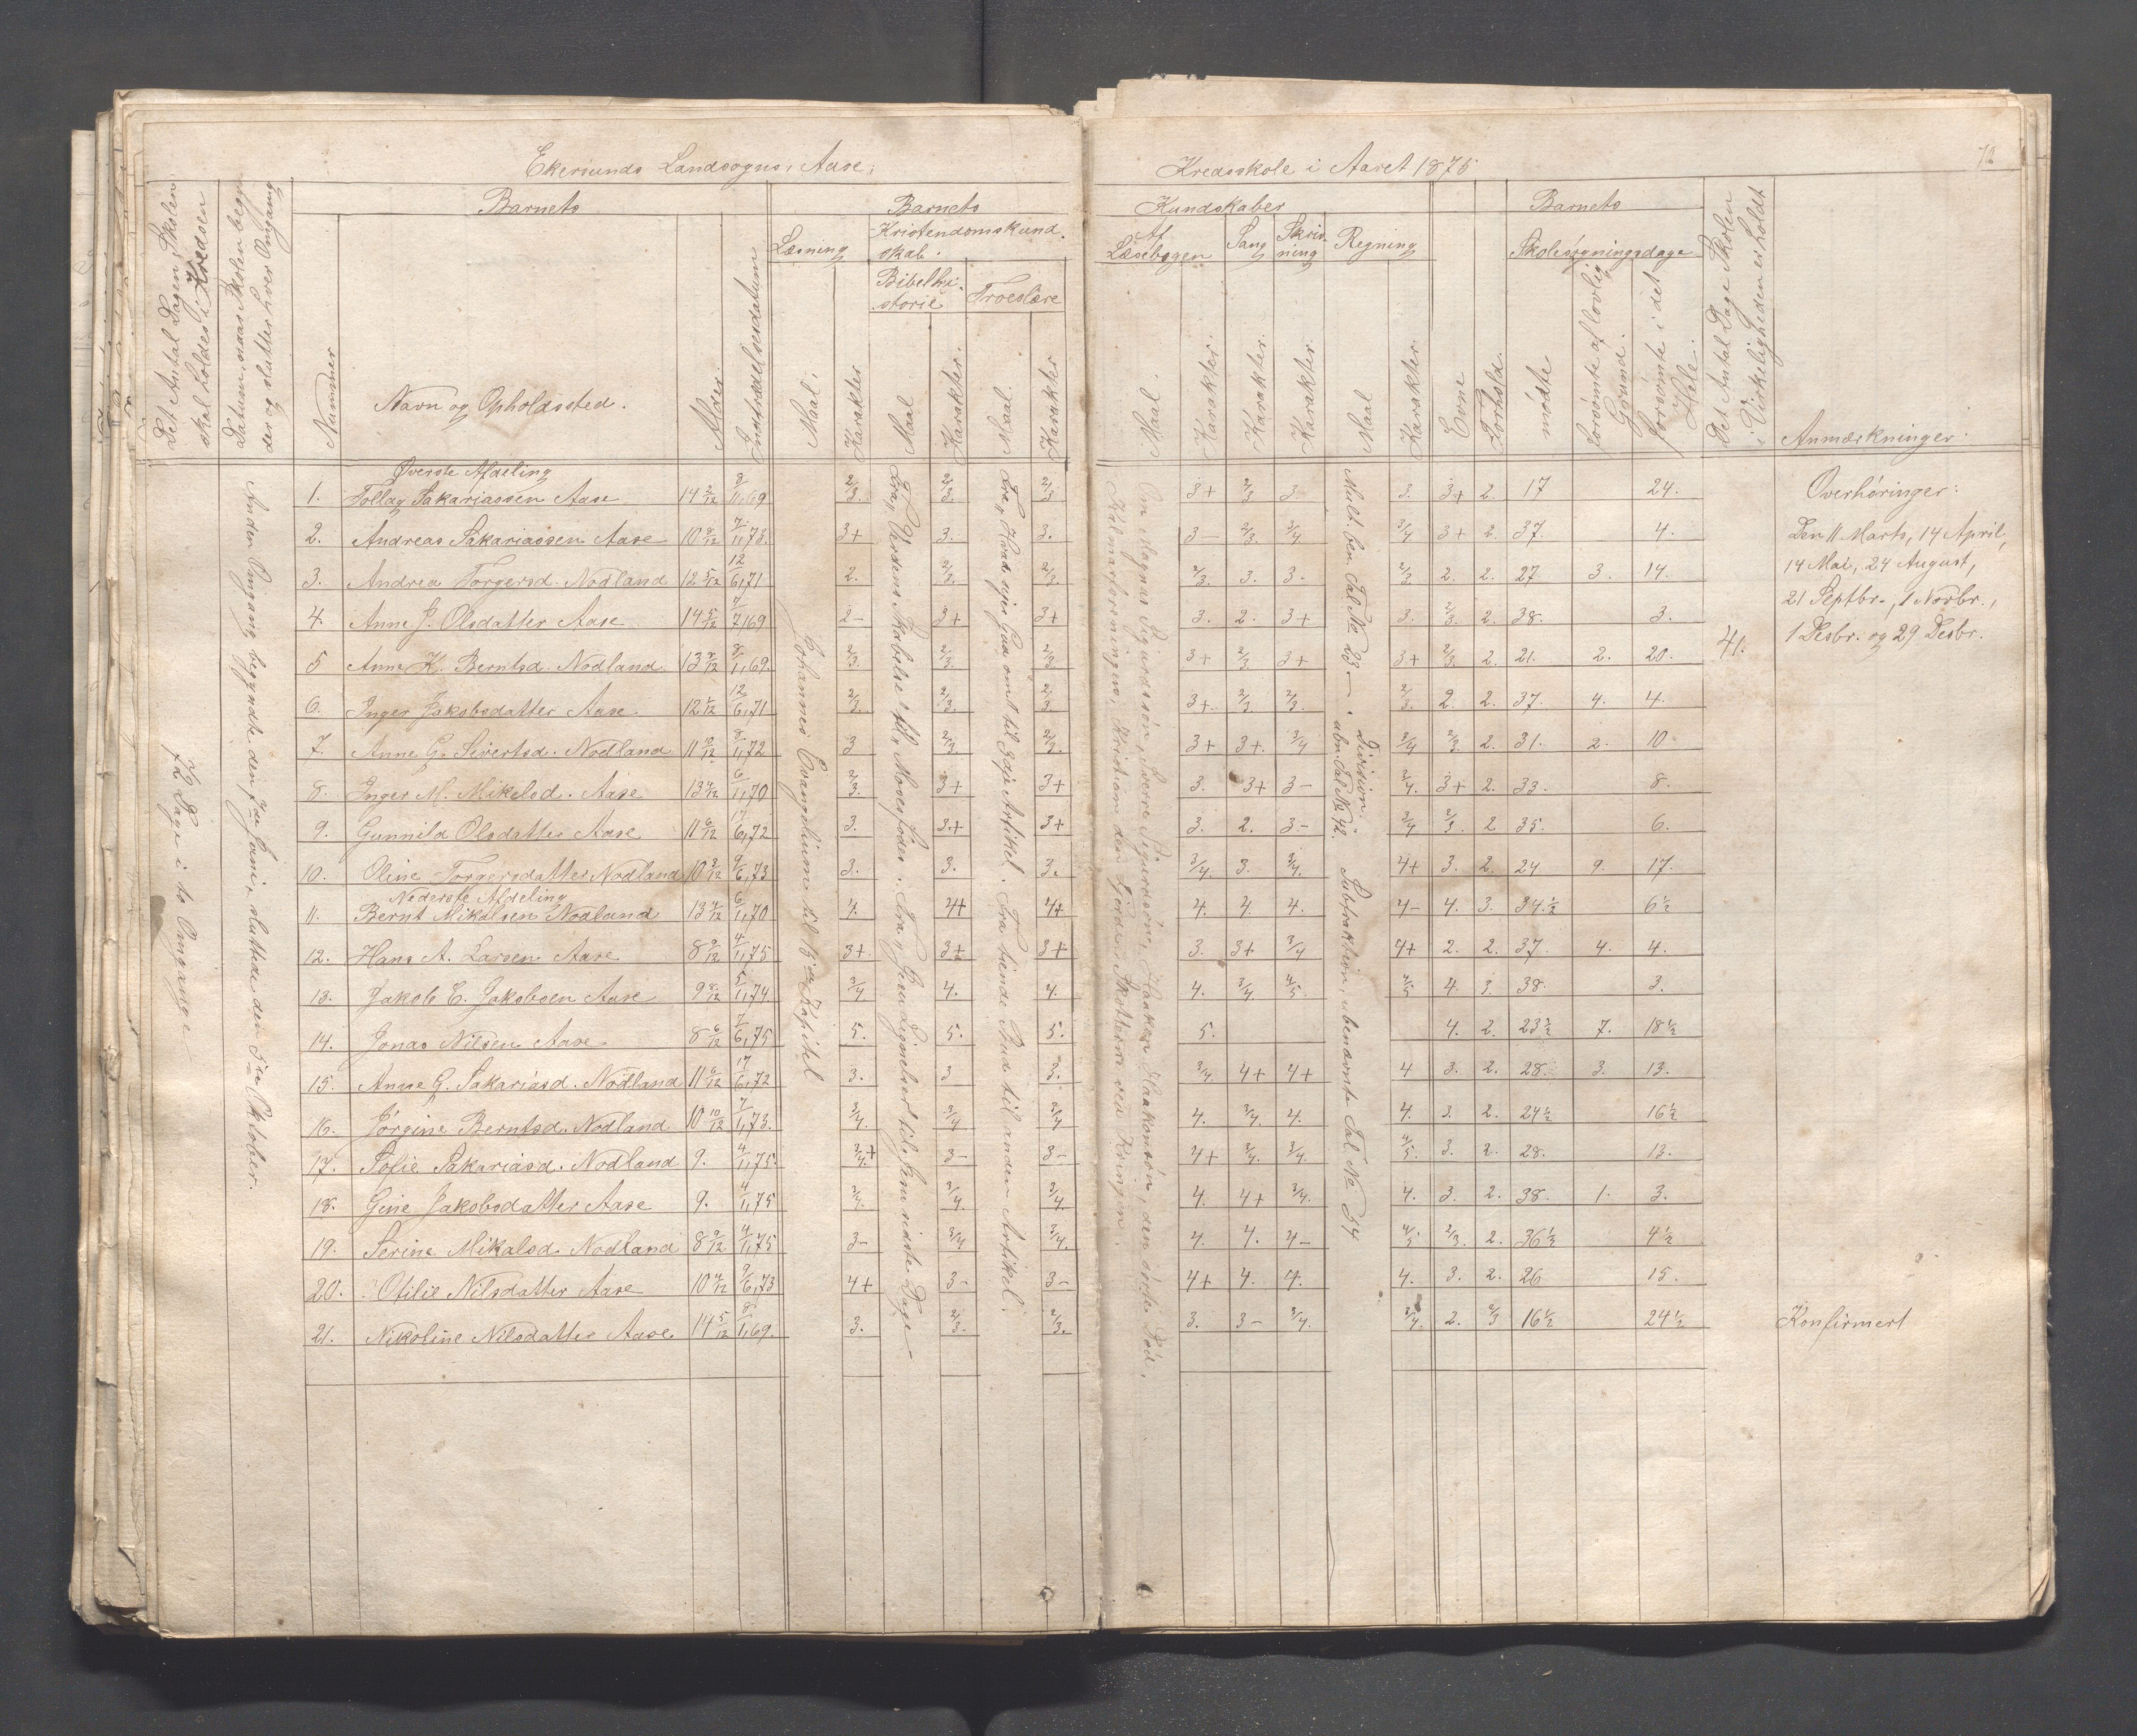 Ekersunds Landsogns, Aase,
Det Antal Dage, Skolen skal holdes i Kredsen
Datum, naar Skolen begynder og slutter hver Omgang
Barnets
Nummer
Navn og Opholdssted.
Alder
Indtrædelsesdatum
Barnets
Læsning
Maal.
Karakter
Kristendomskundskab.
Bibelhistorie
Maal
Karakter.
Troeslære
Maal.
Karakter
72 Dage i to Omgange
Anden Omgang begyndte den 7de Juni, sluttede den 5te Oktober.
Johannes Evangelium til 15de Kapitel
Fra "Verdens Skabelse" til "Moses fødes". Fra "Jesu Lignelser" til "Jesu sidste Dage"
Fra "Hvad siges Gud om" til 3dje Artikel. Fra tiende Bud til anden Artikel.
Øverste Afdeling
1. Tollag Sakariassen Aase 14 2/12 8/11,69 2/3. 2/3. 2/3
2. Andreas Sakariassen Aase 10 8/12 7/1,73. 3+ 3. 3.
3. Andrea Torgersd. Nodland 12 5/12 12/6,71 2. 2/3. 2/3.
4. Anne J. Olsdatter Aase 14 5/12 7/7,69 2- 3+ 3+
5 Anne K. Berntsd. Nodland 13 8/1,69. 2/3. 2/3. 2/3
6. Inger Jakobsdatter Aase. 12 12/6,71 2/3. 2/3. 2/3.
7. Anne G. Sivertsd. Nodland 11 8/1,72 3 2/3. 2/3.
8. Inger M. Mikelsd. Aase 13 6/1,70 2/3. 3+ 3+
9. Gunnild Olsdatter Aase 11 6/12 17/6,72 3. 3+ 3+
10. Oline Torgersdatter Nodland 10 9/6,73 3. 3. 3.
Nederste Afdeling
11. Bernt Mikalsen Nodland 13 6/1,70 4. 4+ 4+
12. Hans A. Larsen Aase 8 9/12 4/1,75 3+. 3+ 3+
13. Jakob E. Jakobsen Aase 9 8/12 5/1,74 3/4 4. 4.
14. Jonas Nilsen Aase 8 6/12 7/6,75 5. 5. 5.
15. Anne G. Sakariasd. Nodland 11 6/12 17/6,72 3. 3 3.
16. Jørgine Berntsd. Nodland 10 10/12 7/1,73. 3/4. 3/4 3/4
17. Sofie Sakariasd. Nodland 9. 4/1,75. 3/4.+ 3- 3-
18. Gine Jakobsdatter Aase 9. 4/1,75 3/4. 3/4. 3/4.
19. Serine Mikalsd. Nodland 8 9/12 4/1,75 3- 3/4 3/4.
20. Otilie Nilsdatter Aase 10 9/6,73 4+ 3- 3-
21. Nikoline Nilsdatter Aase. 14 5/12 8/1,69. 3. 2/3. 2/3.
Kredsskole i Aaret 1875
72
Kundskaber
Af Læsebogen
Maal.
Karakter.
Sang
Karakter.
Skrivning
Karakter.
Regning
Maal
Karakter.
Evne
Forhold.
Barnets
Skolesøgningsdage
mødte
forsømte af lovlig Grund.
forsømte i det Hele.
Det Antal Dage Skolen i Virkeligheden er holdt
Anmærkninger.
Om Magnus Sigurdssøn, Sverre Sigurdssøn, Haakon Haakonssøn, den sorte Død,
Kalmarforeningen, Kristian den fjerde, Skotterne ved Kringen.
Mult. ben. Tal No 23 – . Division ubn. Tal No 42. Subtraktion, ubenævnte Tal No 54
3+ 2/3 3. 3. 3+ 2. 17 24.
3- 2/3. 3/4 3/4 3+ 2. 37. 4.
2/3. 3. 3. 2/3 2. 2. 27 3. 14.
3. 2. 3+ 3. 2/3. 2. 38. 3.
3+ 2/3. 3+ 3+ 2/3. 2. 21. 2. 20.
3+. 2/3 2/3. 2/3. 2. 2. 37. 4. 4.
3+ 3+. 3/4 3/4 2/3. 2. 31. 2. 10
3. 3+ 3- 3/4. 3+ 2. 33. 8.
3. 2. 3- 3/4 2/3. 2 35. 6.
3/4. 3. 3/4. 4+ 3. 2. 24 9. 17.
4. 4. 4. 4- 4. 3. 34.1/2 6 1/2
3. 3+ 3/4 4+ 2. 2. 37 4. 4.
4. 3/4 4/5. 4/5 4. 3. 38. 3.
5. 4. 2. 23 1/2 7. 18 1/2
3/4. 4+ 4+ 4 3. 2. 28. 3. 13.
4. 3/4. 4. 4. 3. 2. 24 1/2 16 1/2
4+ 3/4. 3/4. 4/5. 3. 2. 28. 13.
4. 4+ 3/4. 4. 3. 2. 38. 1. 3.
4. 4. 4- 4/5 2/3. 2. 36 1/2 4 1/2
4+ 4. 4. 4. 3. 2. 26 15.
3. 3- 3/4. 3/4. 2. 2/3 16 1/2 24 1/2
41.
Overhøringer:
Den 11 Marts, 14 April,
14 Mai, 24 August,
21 Septbr., 1 Novbr.,
1 Desbr. og 29 Desbr.
Konfirmert